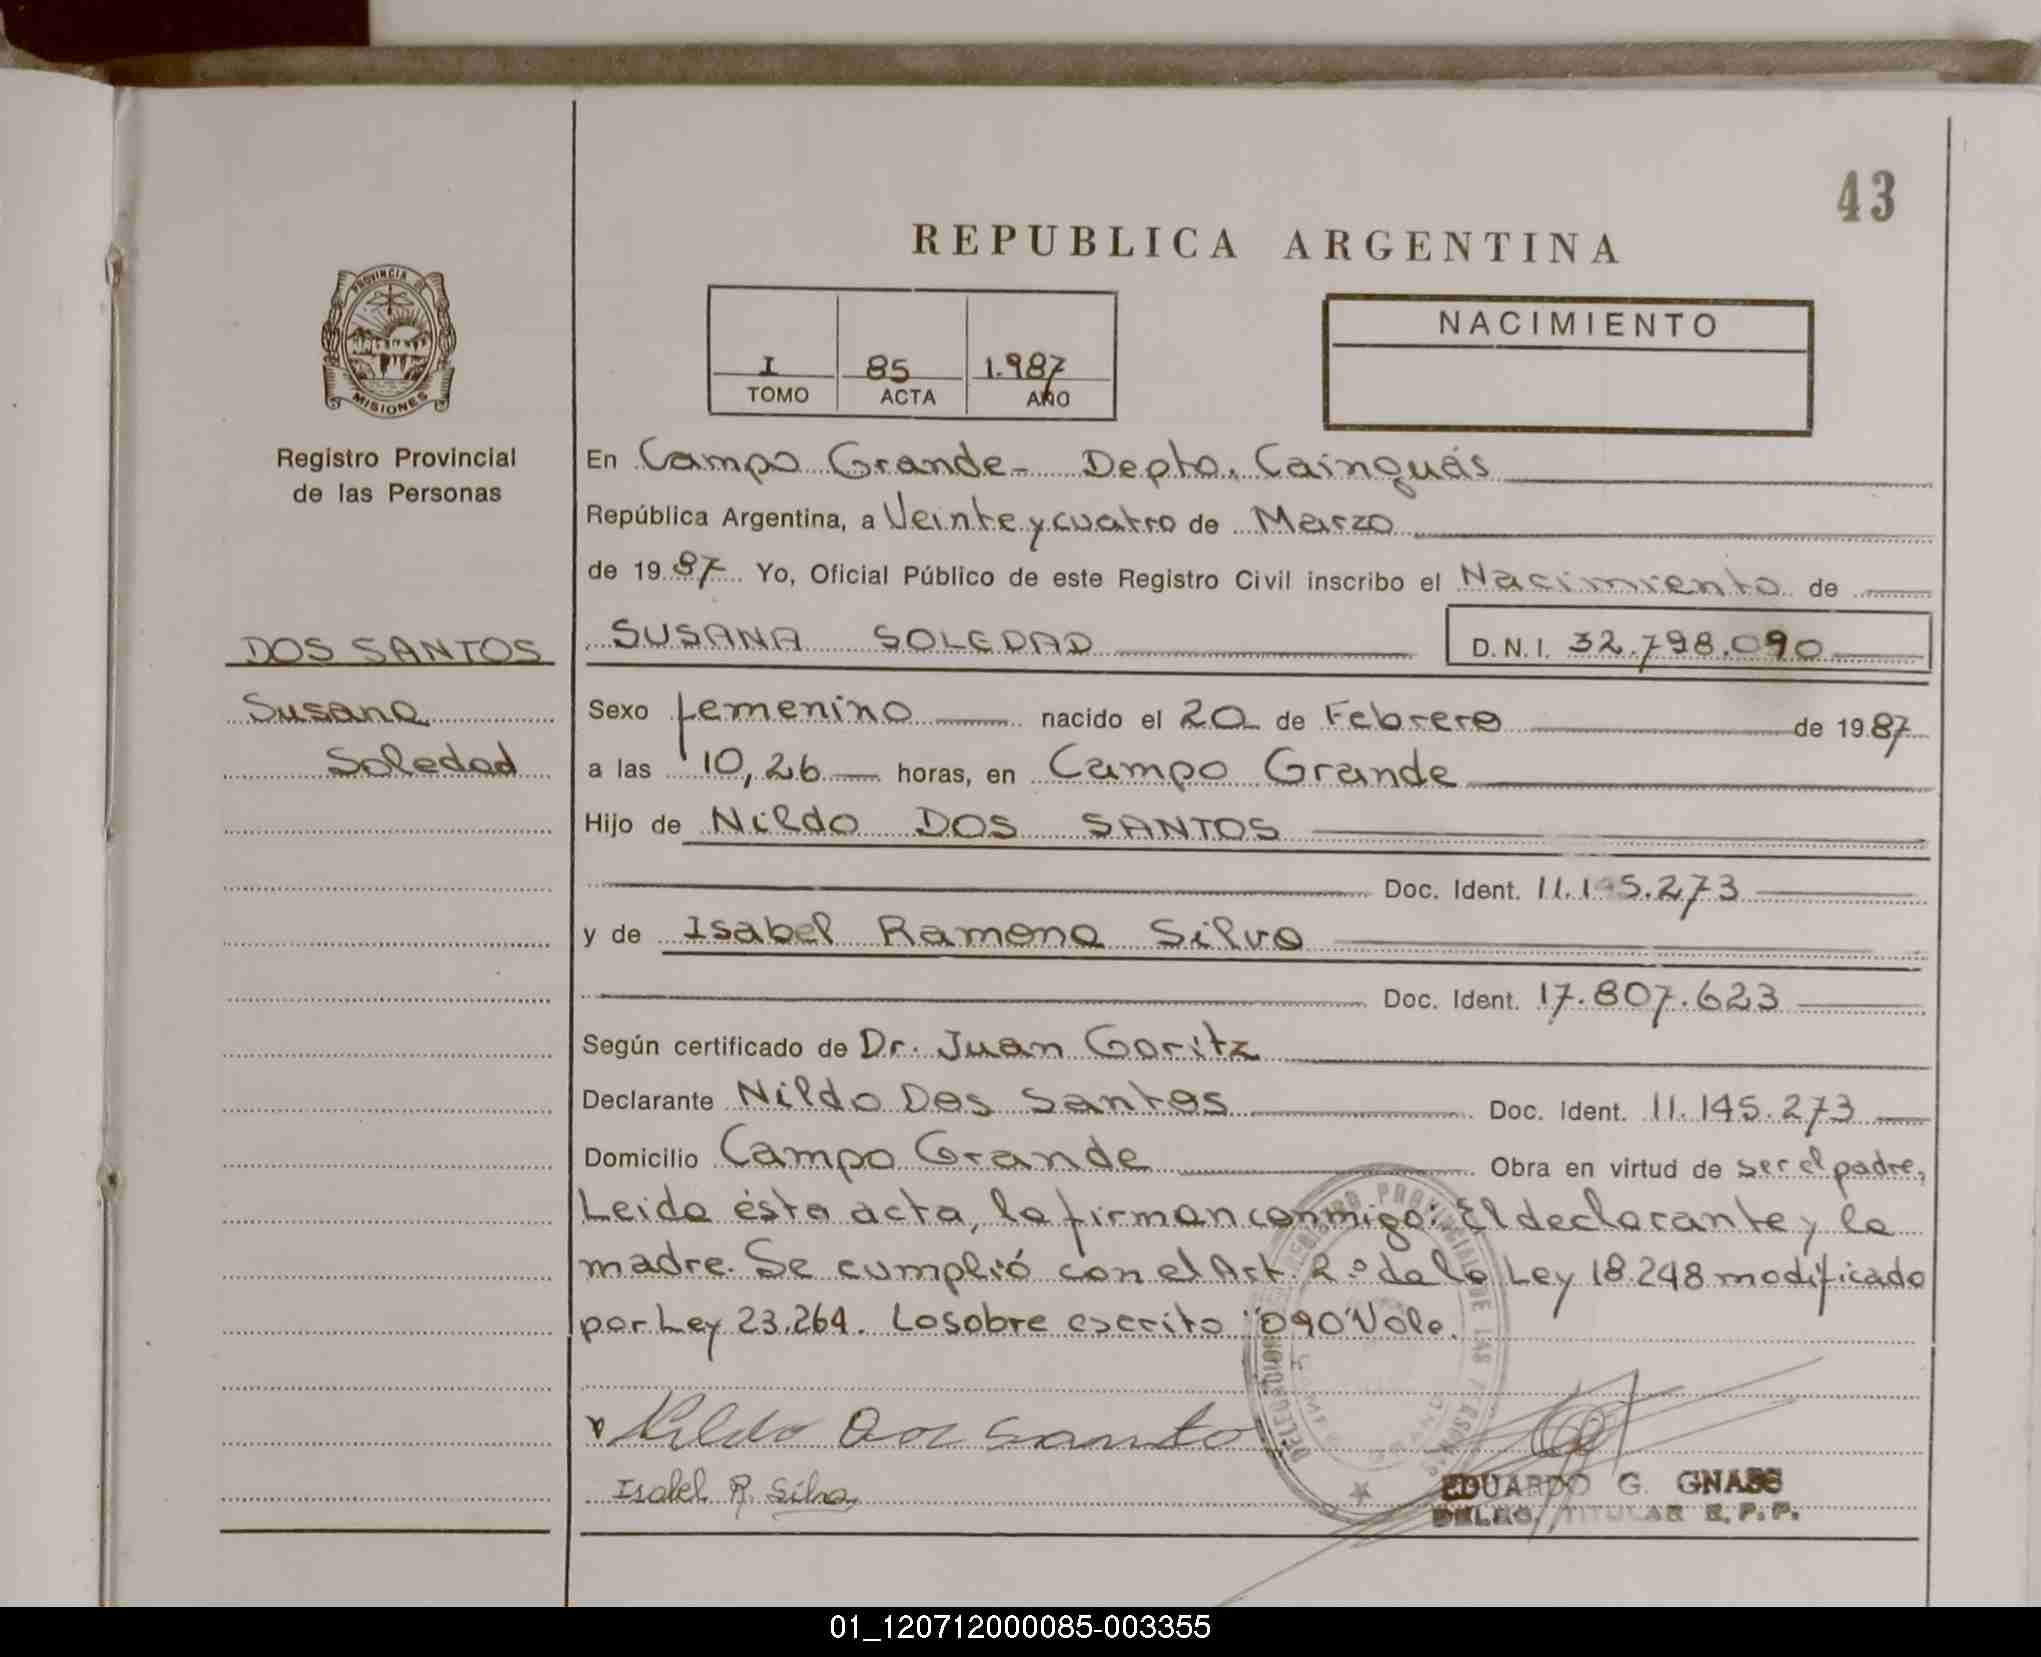 43
REPUBLICA ARGENTINA
PROVINCIA DE
MISIONES
Registro Provincial
de las Personas
I 85 1.987
TOMO ACTA AÑO
NACIMIENTO
En Campo Grande - Depto. Cainguás
República Argentina, a Veinte y cuatro de Marzo
de 1987 Yo, Oficial Público de este Registro Civil inscribo el Nacimiento de
DOS SANTOS
Susana
Soledad
SUSANA SOLEDAD D.N.I. 32.798.090
Sexo femenino nacido el 20 de Febrero de 1987
a las 10,26 horas, en Campo Grande
Hijo de Nildo DOS SANTOS
Doc. Ident. 11.145.273
y de Isabel Ramona Silva
Doc. Ident. 17.807.623
Según certificado de Dr. Juan Goritz
Declarante Nildo Dos Santos Doc. Ident. 11.145.273
Domicilio Campo Grande Obra en virtud de ser el padre,
Leida ésta acta, la firman conmigo: El declarante y la
madre. Se cumplió con el Art. 2.º de la Ley 18.248 modificado
por Ley 23.264. Lo sobre escrito "090" Vale.
Nildo Dos Santo
Isabel R. Silva
EDUARDO G. GNASS
DELEG. TITULAR R.P.P.
01_120712000085-003355